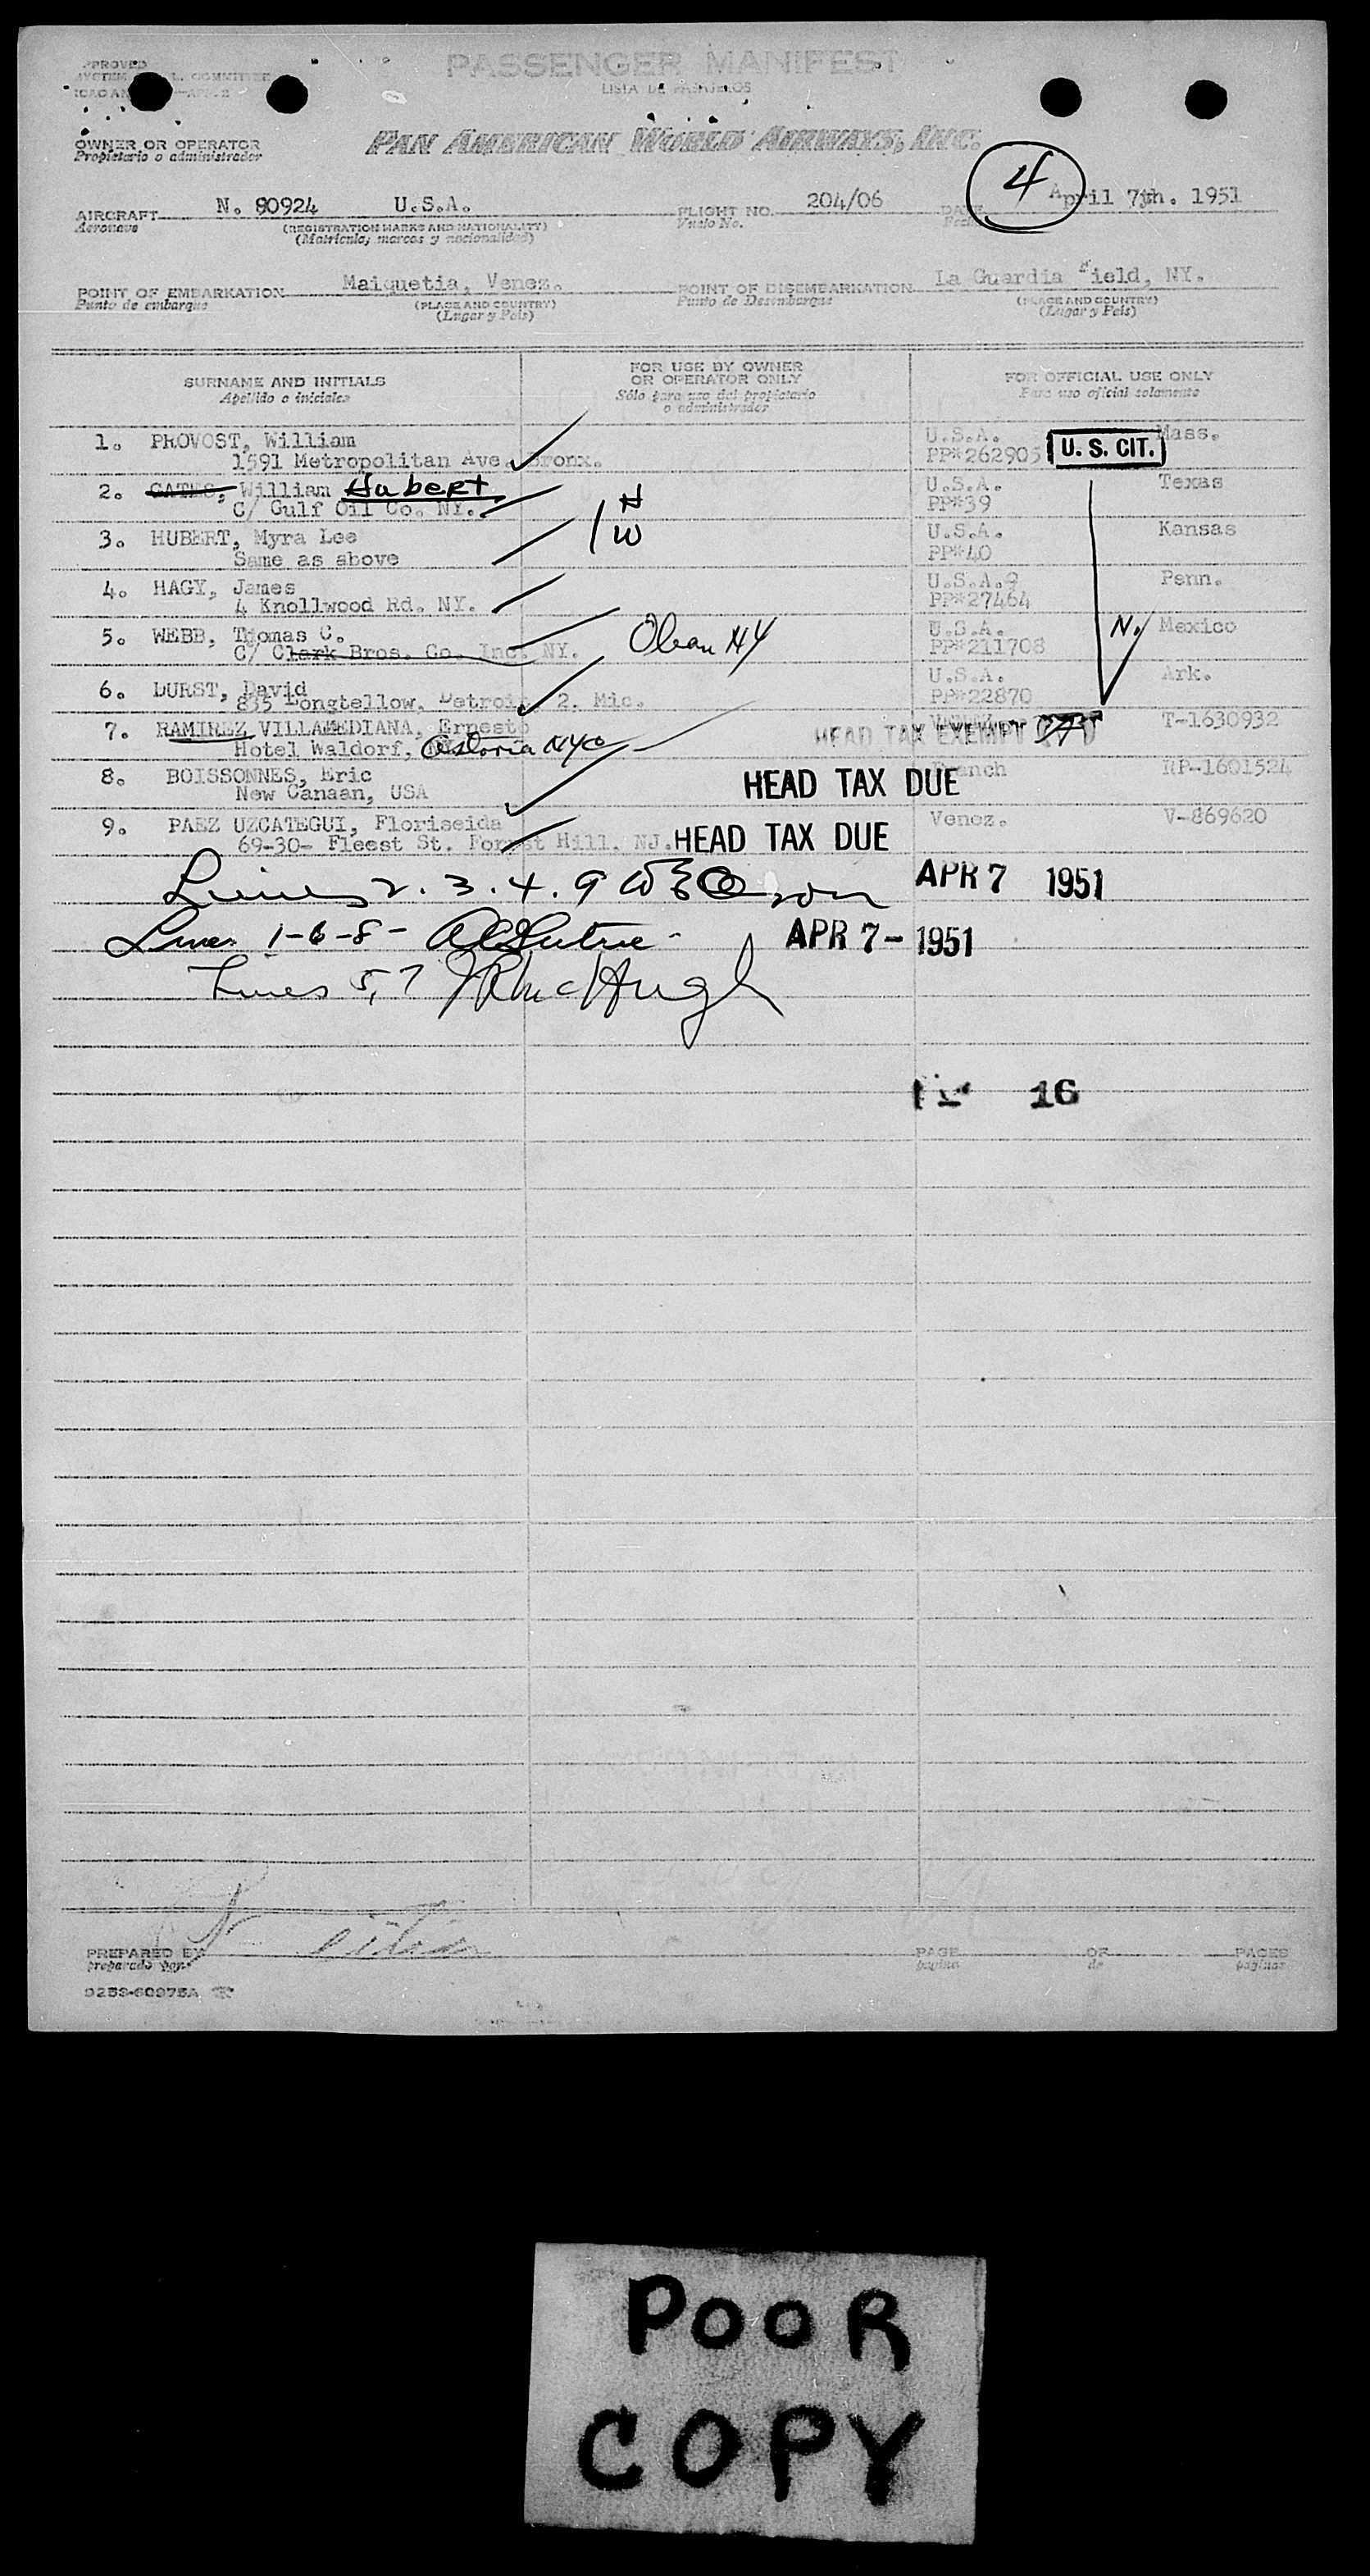 PASSENGER MANIFEST
LISTA DE PASAJEROS
OWNER OR OPERATOR
Propietario o administrador
PAN AMERICAN WORLD AIRWAYS, INC.
4
AIRCRAFT N. 80924 U.S.A. FLIGHT NO. 204/06 DATE April 7th. 1951
Aeronave (REGISTRATION MARKS AND NATIONALITY) Vuelo No. Fecha
(Matricula, marcas y nacionalidad)
POINT OF EMBARKATION Maiquetia, Venez. POINT OF DISEMBARKATION La Guardia Field, NY.
Punto de embarque (PLACE AND COUNTRY) Punto de Desembarque (PLACE AND COUNTRY)
(Lugar y Pais) (Lugar y Pais)
SURNAME AND INITIALS FOR USE BY OWNER OR OPERATOR ONLY FOR OFFICIAL USE ONLY
Apellido e iniciales Sólo para uso del propietario o administrador Para uso oficial solamente
1. PROVOST, William U.S.A. Mass.
1591 Metropolitan Ave. Bronx. PP#262905 U. S. CIT.
2. GATES, William Hubert U.S.A. Texas
C/ Gulf Oil Co. NY. PP#39
H
W
3. HUBERT, Myra Lee U.S.A. Kansas
Same as above PP#40
4. HAGY, James U.S.A. Penn.
4 Knollwood Rd. NY. PP#27464
5. WEBB, Thomas C. Olean NY U.S.A. N. Mexico
C/ Clark Bros. Co. Inc. NY. PP#211708
6. DURST, David U.S.A. Ark.
835 Longfellow, Detroit, 2. Mic. PP#22870
7. RAMIREZ VILLAMEDIANA, Ernesto HEAD TAX EXEMPT T-1630932
Hotel Waldorf, Astoria NYC
8. BOISSONNES, Eric HEAD TAX DUE French RP-1601524
New Canaan, USA
9. PAEZ UZCATEGUI, Floriseida Venez. V-869620
69-30- Fleest St. Forest Hill. NJ. HEAD TAX DUE
Lines 2. 3. 4. 9 APR 7 1951
Lines 1-6-8- APR 7- 1951
Lines 5, 7 J R McHugh
16
PREPARED BY PAGE OF PAGES
preparado por pagina de paginas
9253-60975A
POOR
COPY